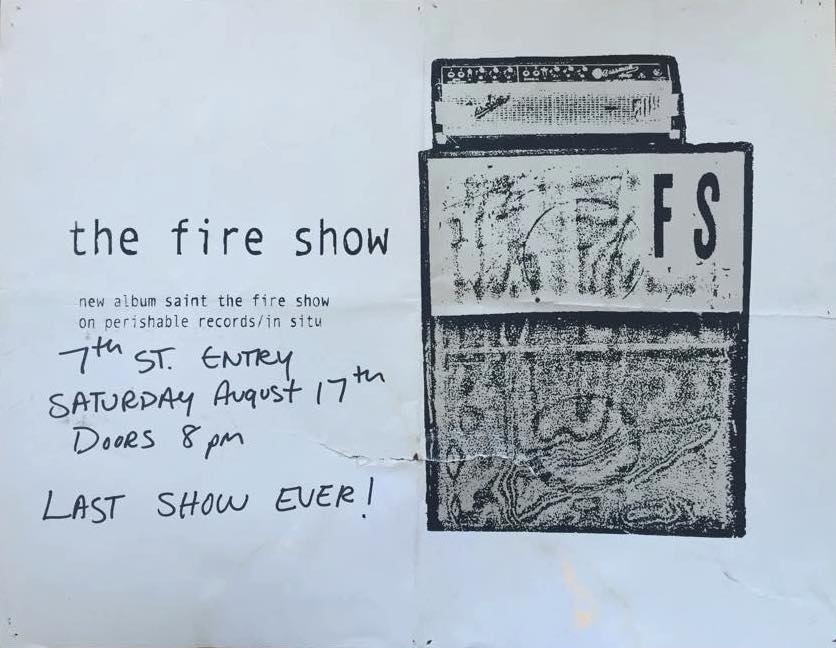 the fire show
new album saint the fire show
on perishable records/in situ
7th ST. ENTRY
SATURDAY AUgUST 17th
DOORS 8 pm
LAST SHOW EVER!
FS